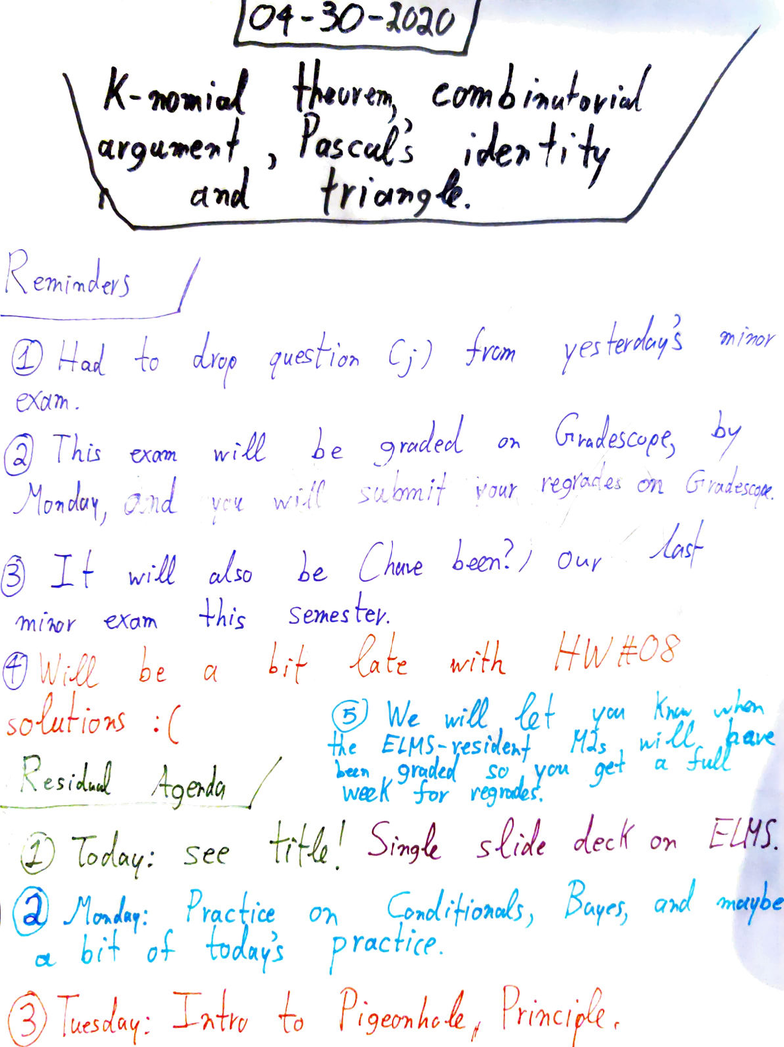 04-30-2020
K-nomial theorem, combinatorial
argument, Pascal's identity
and triangle.
Reminders
① Had to drop question (j) from yesterday's minor
exam.
② This exam will be graded on Gradescope, by
Monday, and you will submit your regrades on Gradescope.
③ It will also be (have been?) our last
minor exam this semester.
④ Will be a bit late with HW#08
solutions :(
⑤ We will let you know when
the ELMS-resident M2s will have
been graded so you get a full
week for regrades.
Residual Agenda
① Today: see title! Single slide deck on ELMS.
② Monday: Practice on Conditionals, Bayes, and maybe
a bit of today's practice.
③ Tuesday: Intro to Pigeonhole, Principle.